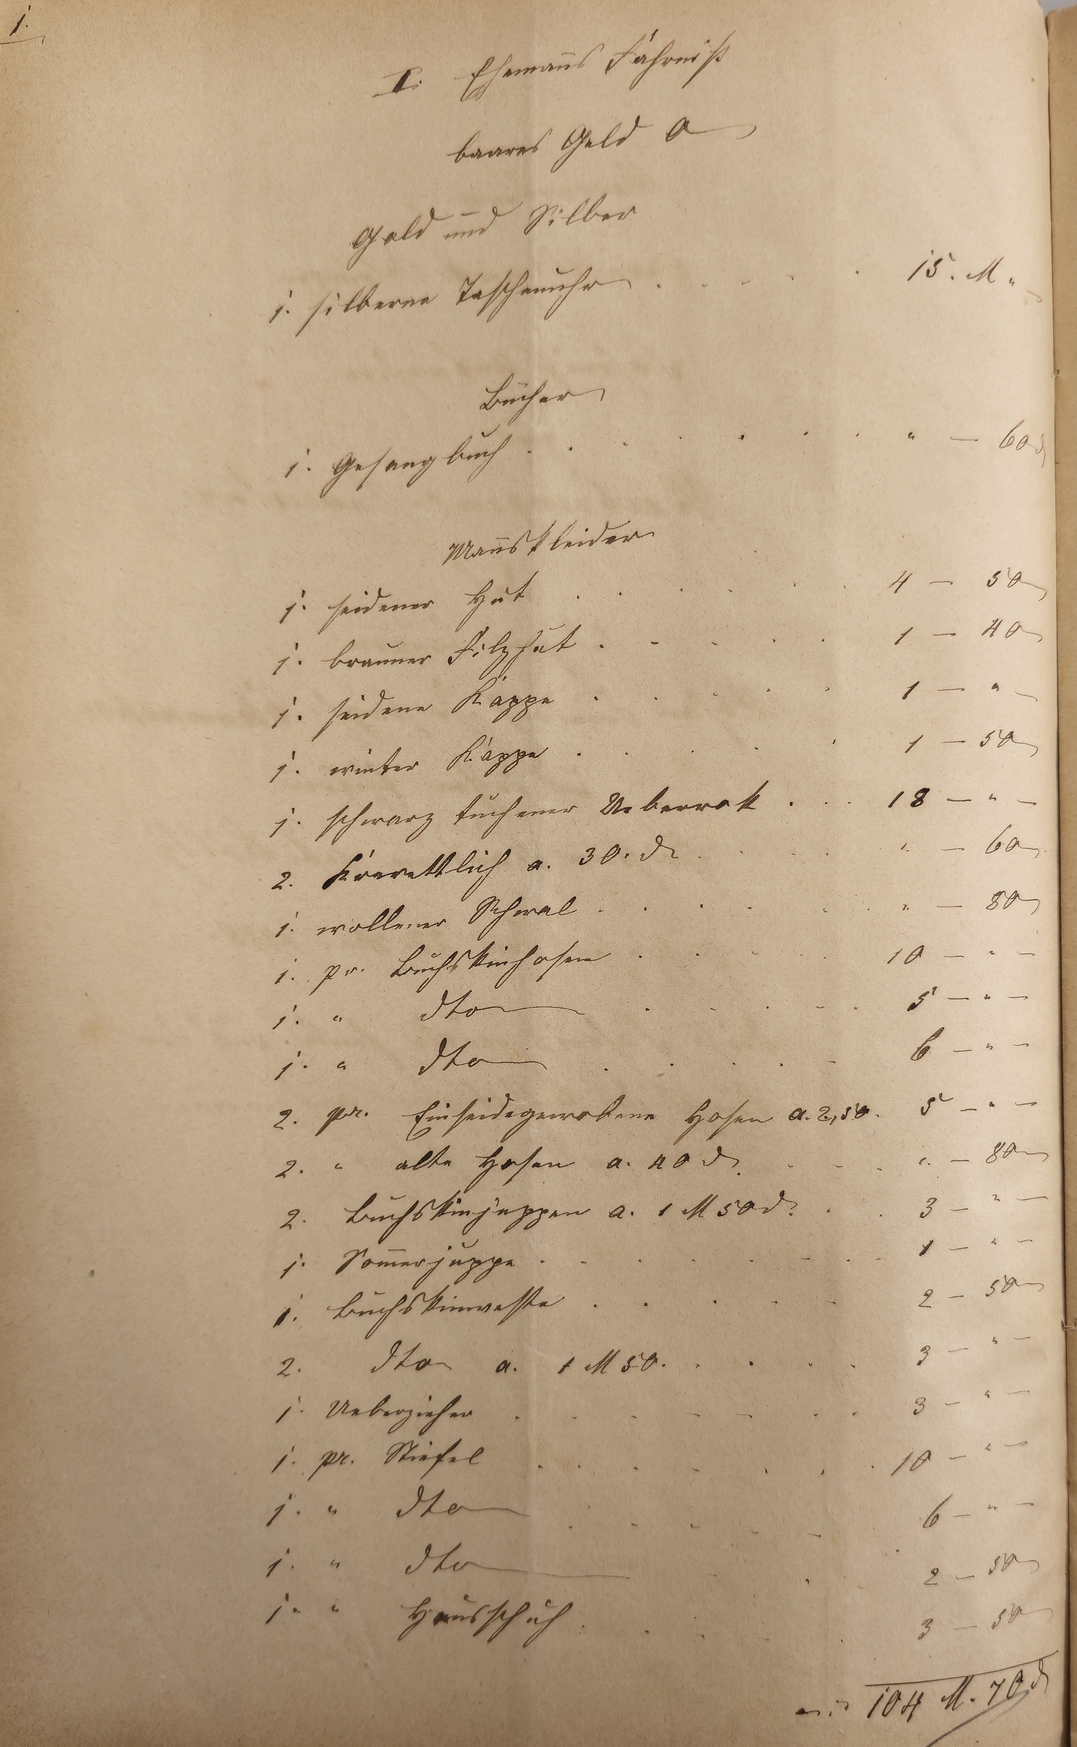 1.
I. Ehemanns Fahrniß
baares Geld 0
Gold und Silber
1. silberne Taschenuhr . . . . 15. M „
Bücher
1. Gesangbuch . . . . . . „ — 60 d
Mannskleider
1. seidener Hut . . . . . 4 — 50
1. brauner Filzhut . . . . . 1 — 40
1. seidene Kappe . . . . . 1 — „ —
1. winter Kappe . . . . . 1 — 50
1. schwarz tuchener Ueberrok . . . 18 — „ —
2. Kravattlich a. 30. d . . . . „ — 60
1. wollener Schwal . . . . . „ — 80
1. pr. Buchskinhosen . . . . 10 — „ —
1. „ dto . . . . . 5 — „ —
1. „ dto . . . . . 6 — „ —
2. pr. Einseidegewobene Hosen a. 2,50. 5 — „ —
2. „ alte Hosen a. 40 d. . . . „ — 80
2. Buchskinjuppen a. 1 M 50 d. . . 3 — „ —
1. Som̄erjuppe . . . . . . 1 — „ —
1. Buchskinweste . . . . . 2 — 50
2. dto a. 1 M 50. . . . . 3 — „ —
1. Ueberzieher . . . . . . 3 — „ —
1. pr. Stiefel . . . . . . 10 — „ —
1. „ dto . . . . . 6 — „ —
1. „ dto . . 2 — 50
1. „ Hausschuh . . . . . 3 — 50
104 M. 70 d